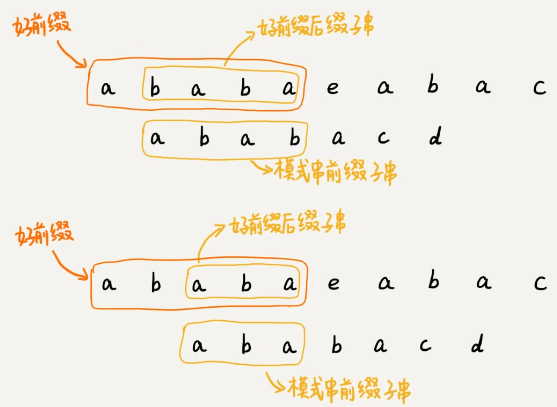 好前缀
好前缀后缀子串
a b a b a e a b a c
a b a b a c d
模式串前缀子串
好前缀
好前缀后缀子串
a b a b a e a b a c
a b a b a c d
模式串前缀子串